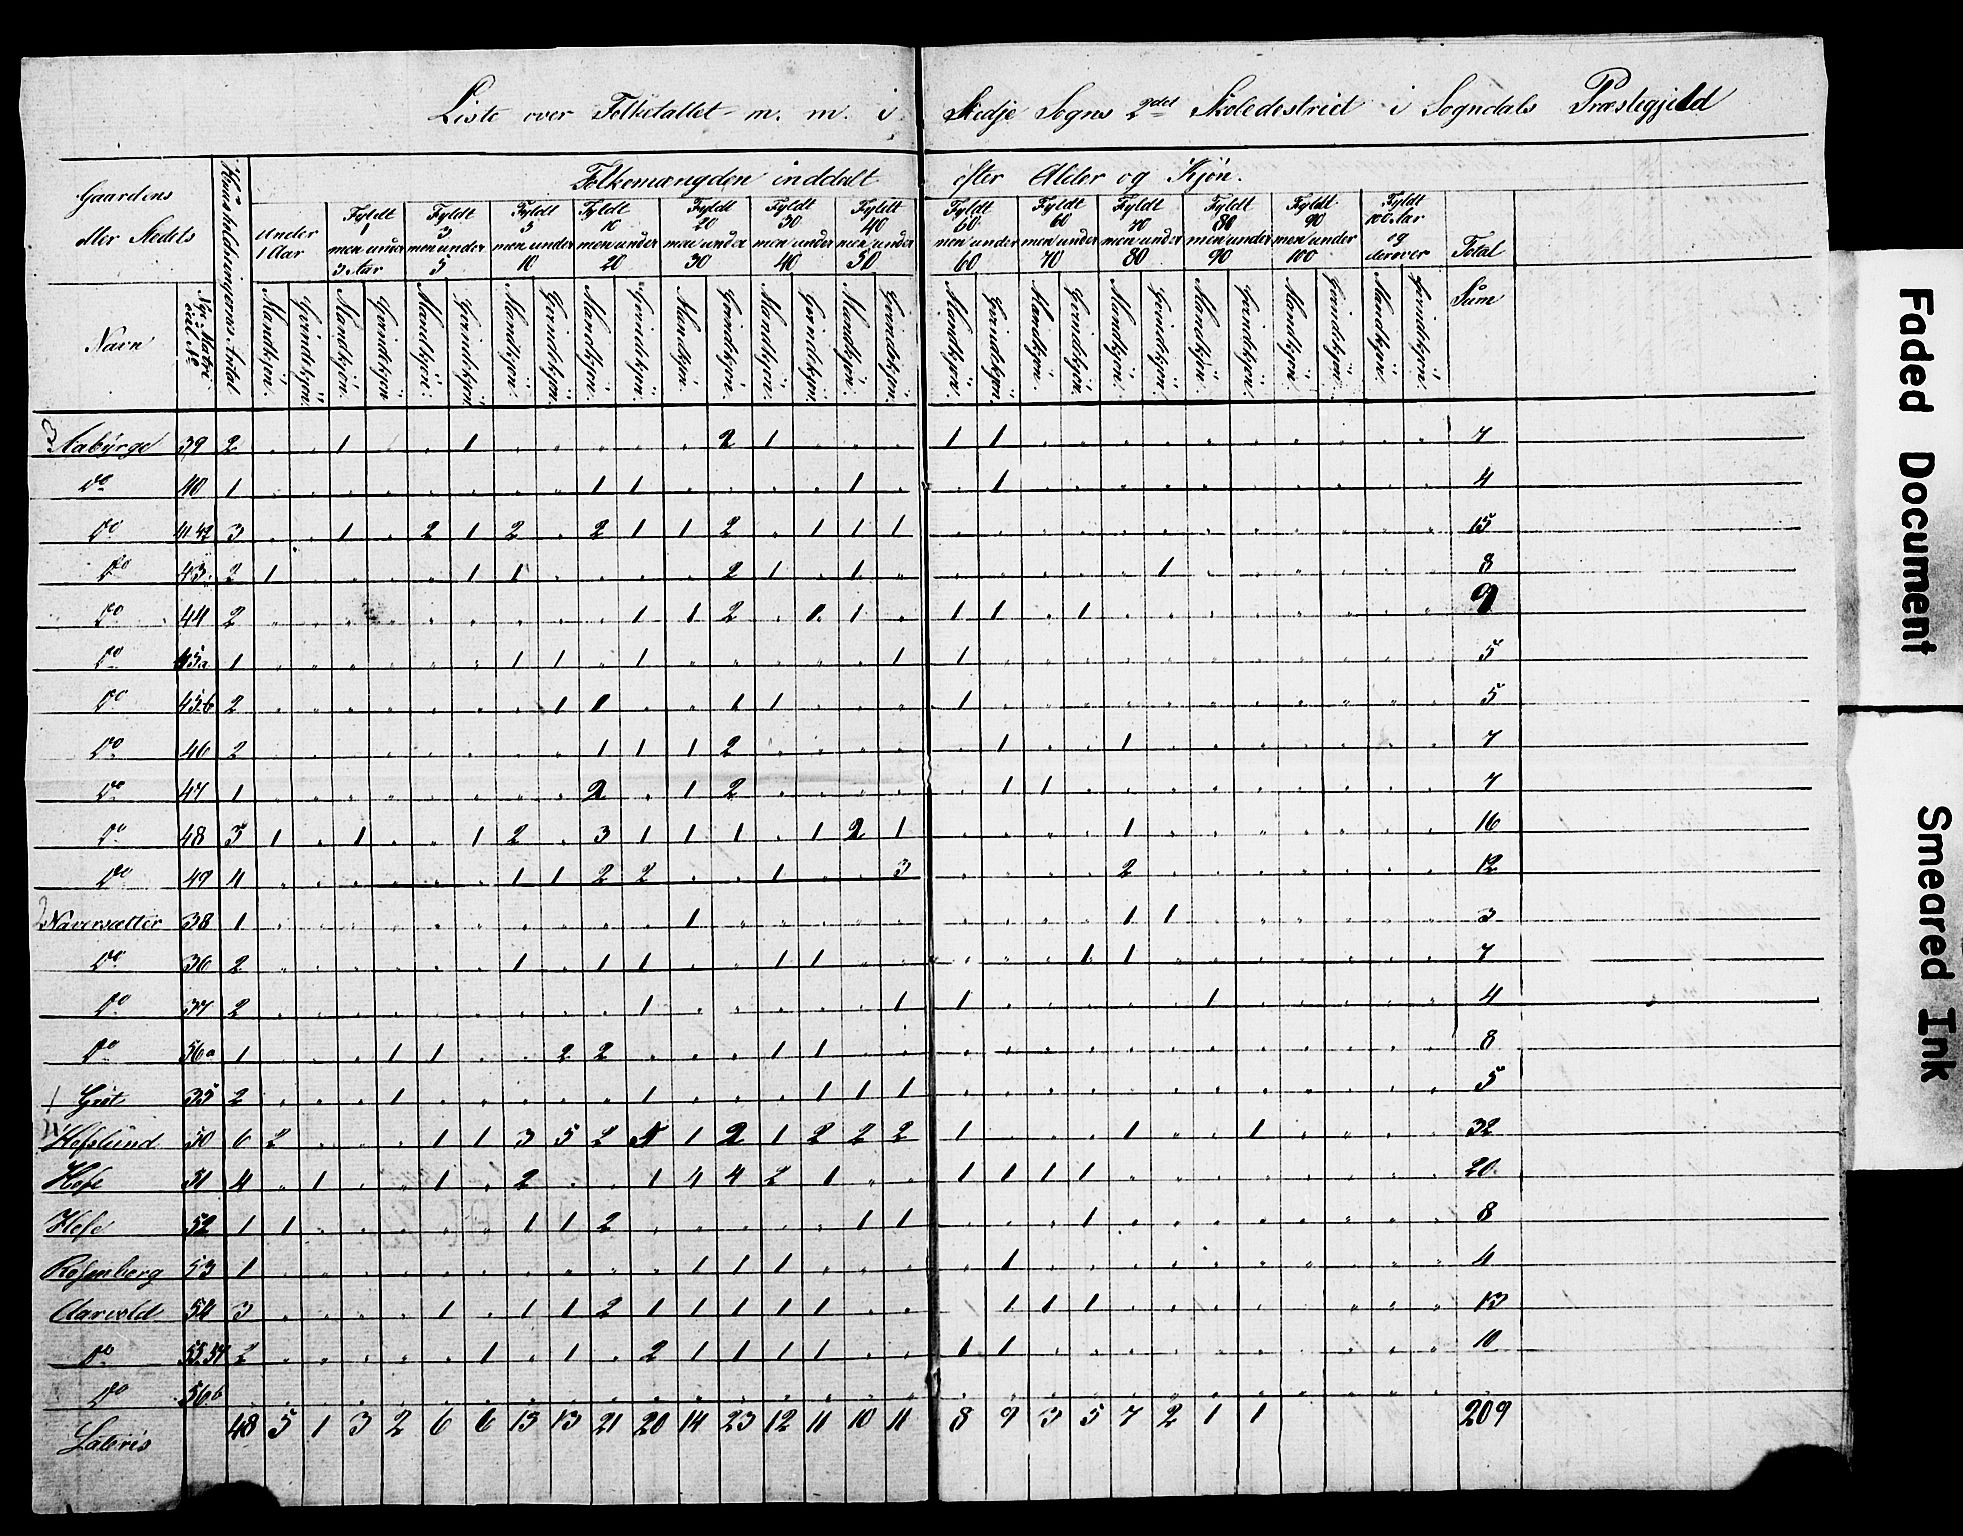 Liste over Folketallet m. m. i Stedje Sogns 2det Skoledestrict i Sogndals Præstegjeld
Gaardens eller Stedets
Navn
Nye Matricul No
Huusholdningernes Antal
Folkemængden inddelt efter Alder og Kjön.
Under 1 Aar
Fyldt 1 men under 3 Aar
Fyldt 3 men under 5
Fyldt 5 men under 10
Fyldt 10 men under 20
Fyldt 20 men under 30
Fyldt 30 men under 40
Fyldt 40 men under 50
Fyldt 50 men under 60
Fyldt 60 men under 70
Fyldt 70 men under 80
Fyldt 80 men under 90
Fyldt 90 men under 100
Fyldt 100 Aar og derover
Total Sum
Mandkjön. Qvindekjön. Mandkjön. Qvindekjön. Mandkjön. Qvindekjön. Mandkjön. Qvindekjön. Mandkjön. Qvindekjön. Mandkjön. Qvindekjön. Mandkjön. Qvindekjön. Mandkjön. Qvindekjön. Mandkjön. Qvindekjön. Mandkjön. Qvindekjön. Mandkjön. Qvindekjön. Mandkjön. Qvindekjön. Mandkjön. Qvindekjön. Mandkjön. Qvindekjön.
3 Aabÿrge 39 2 . . 1 . . 1 . . . . . 2 1 . . . 1 1 . . . . . . . . . . 7
Do 40 1 . . . . . . . . 1 1 . . . . 1 . . 1 . . . . . . . . . . 4
Do 41.42 3 . . 1 . 2 1 2 . 2 1 1 2 . 1 1 1 . . . . . . . . . . . . 15
Do 43. 2 1 . . . . 1 1 . . . . 2 1 . 1 . . . . . . 1 . . . . . . 8
Do 44 2 . . . . . . . . . 1 1 2 . 1 1 . 1 1 . 1 . . . . . . . . 9
Do 45a 1 . . . . . . 1 1 . 1 . . . . . 1 1 . . . . . . . . . . . 5
Do 45b 2 . . . . . . . 1 1 . . 1 1 . . . 1 . . . . . . . . . . . 5
Do 46 2 . . . . . . . . 1 1 1 2 . . . . . 1 . . 1 . . . . . . . 7
Do 47 1 . . . . . . . . 2 . 1 2 . . . . . 1 1 . . . . . . . . . 7
Do 48 5 1 . 1 . . 1 2 . 3 1 1 1 . 1 2 1 . . . . 1 . . . . . . . 16
Do 49 4 . . . . . . 1 1 2 2 . . 1 . . 3 . . . . 2 . . . . . . . 12
2 Naversætter 38 1 . . . . . . . . . . 1 . . . . . . . . . 1 1 . . . . . . 3
Do 36 2 . . . . . . 1 . 1 1 . . 1 1 . . . . . 1 1 . . . . . . . 7
Do 37 2 . . . . . . . . . 1 . . . . . 1 1 . . . . . 1 . . . . . 4
Do 56a 1 . . . 1 1 . . 2 2 . . . 1 1 . . . . . . . . . . . . . . 8
1 Grot 35 2 . . . 1 . . . . . 1 . . . 1 1 1 . . . . . . . . . . . . 5
4 Hofslund 50 6 2 . . . 1 1 3 5 2 5 1 2 1 2 2 2 1 . . . 1 . . 1 . . . . 32
Hofe 51 4 . 1 . . 1 . 2 . . 1 4 4 2 1 . . 1 1 1 1 . . . . . . . . 20
Hofe 52 1 1 . . . . . 1 1 2 . . . . . 1 1 . . . 1 . . . . . . . . 8
Rosenberg 53 1 . . . . . . . . . . 1 1 1 . . . . 1 . . . . . . . . . . 4
Aarvold 54 3 . . . . 1 . 1 1 2 1 1 1 1 1 . . . 1 1 1 . . . . . . . . 13
Do 55.57 2 . . . . . 1 . 1 . 2 1 1 1 1 . . 1 1 . . . . . . . . . . 10
Do 56b . . . . . . . . . . . . . . . . . . . . . . . . . . . .
Lateris 48 5 1 3 2 6 6 13 13 21 20 14 23 12 11 10 11 8 9 3 5 7 2 1 1 209
Faded Document
Smeared Ink